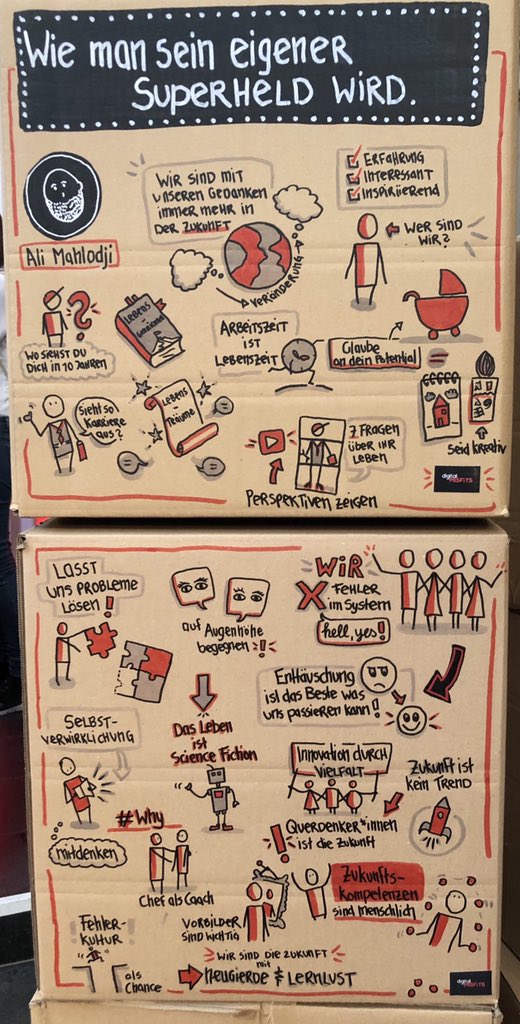 Wie man sein eigener
Superheld wird.
Ali Mahlodji
Wir sind mit
unseren Gedanken
immer mehr in
der Zukunft
Veränderung
Erfahrung
Interessant
Inspirierend
Wer sind
wir?
Wo siehst du
Dich in 10 Jahren
Lebens-
Arbeitszeit
ist
Lebenszeit
Glaube
an dein Potential
Sieht so
Karriere
aus?
Lebens-
träume
7 Fragen
über Ihr
Leben
Perspektiven zeigen
Seid kreativ
digital
MISFITS
Lasst
uns Probleme
lösen!
auf Augenhöhe
begegnen!
Wir
X Fehler
im System
hell, yes!
Enttäuschung
ist das Beste was
uns passieren kann!
Selbst-
verwirklichung
Das Leben
ist
Science Fiction
Innovation durch
Vielfalt
Zukunft ist
kein Trend
#Why
mitdenken
Querdenker*innen
ist die Zukunft
Chef als Coach
Vorbilder
sind wichtig
Zukunfts-
kompetenzen
sind menschlich
Fehler-
kultur
als
Chance
Wir sind die Zukunft
mit
Neugierde & Lernlust
digital
MISFITS